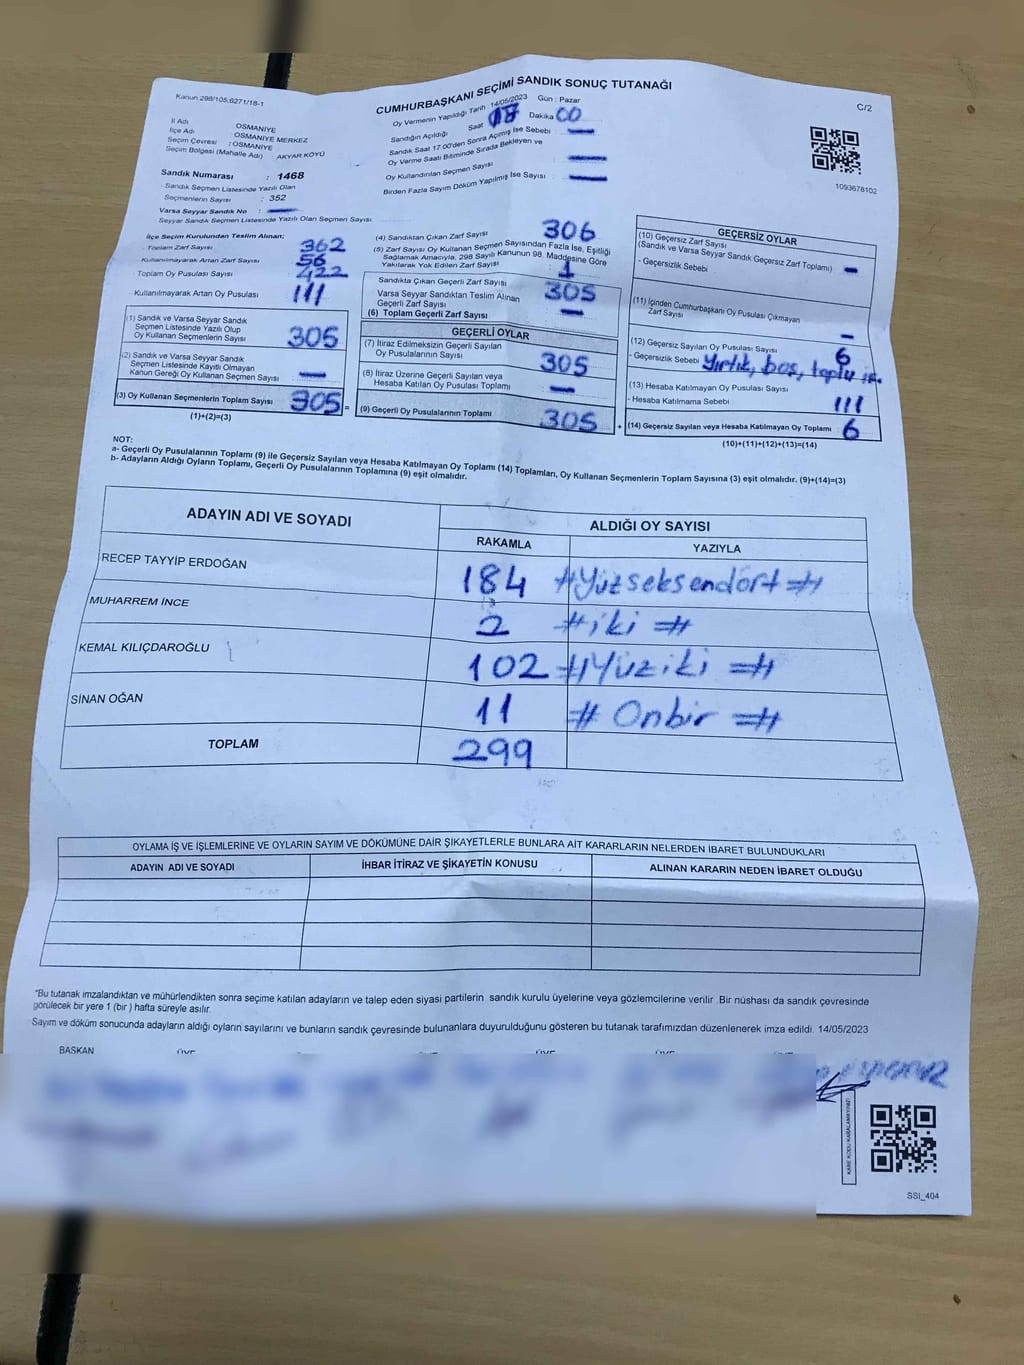 Kanun;298/105,6271/18-1
CUMHURBAŞKANI SEÇİMİ SANDIK SONUÇ TUTANAĞI
C/2
İl Adı OSMANİYE
İlçe Adı OSMANİYE MERKEZ
Seçim Çevresi : OSMANİYE
Seçim Bölgesi (Mahalle Adı) AKYAR KÖYÜ
Sandık Numarası : 1468
- Sandık Seçmen Listesinde Yazılı Olan
Seçmenlerin Sayısı : 352
Varsa Seyyar Sandık No :
Seyyar Sandık Seçmen Listesinde Yazılı Olan Seçmen Sayısı:
Oy Vermenin Yapıldığı Tarih 14/05/2023 Gün : Pazar
Sandığın Açıldığı Saat 18 Dakika 00
Sandık Saat 17.00'den Sonra Açılmış İse Sebebi
Oy Verme Saati Bitiminde Sırada Bekleyen ve
Oy Kullandırılan Seçmen Sayısı
Birden Fazla Sayım Döküm Yapılmış İse Sayısı
1093678102
İlçe Seçim Kurulundan Teslim Alınan;
- Toplam Zarf Sayısı 362
Kullanılmayarak Artan Zarf Sayısı 56
Toplam Oy Pusulası Sayısı 422
- Kullanılmayarak Artan Oy Pusulası 111
(1) Sandık ve Varsa Seyyar Sandık
Seçmen Listesinde Yazılı Olup
Oy Kullanan Seçmenlerin Sayısı 305
(2) Sandık ve Varsa Seyyar Sandık
Seçmen Listesinde Kayıtlı Olmayan
Kanun Gereği Oy Kullanan Seçmen Sayısı
(3) Oy Kullanan Seçmenlerin Toplam Sayısı 305 =
(1)+(2)=(3)
(4) Sandıktan Çıkan Zarf Sayısı 306
(5) Zarf Sayısı Oy Kullanan Seçmen Sayısından Fazla İse, Eşitliği
Sağlamak Amacıyla, 298 Sayılı Kanunun 98. Maddesine Göre
Yakılarak Yok Edilen Zarf Sayısı 1
Sandıkta Çıkan Geçerli Zarf Sayısı 305
Varsa Seyyar Sandıktan Teslim Alınan
Geçerli Zarf Sayısı
(6) Toplam Geçerli Zarf Sayısı
GEÇERLİ OYLAR
(7) İtiraz Edilmeksizin Geçerli Sayılan
Oy Pusulalarının Sayısı 305
(8) İtiraz Üzerine Geçerli Sayılan veya
Hesaba Katılan Oy Pusulası Toplamı
(9) Geçerli Oy Pusulalarının Toplamı 305 +
GEÇERSİZ OYLAR
(10) Geçersiz Zarf Sayısı
(Sandık ve Varsa Seyyar Sandık Geçersiz Zarf Toplamı)
- Geçersizlik Sebebi
(11) İçinden Cumhurbaşkanı Oy Pusulası Çıkmayan
Zarf Sayısı
(12) Geçersiz Sayılan Oy Pusulası Sayısı 6
- Geçersizlik Sebebi Yırtık, boş, toplu
(13) Hesaba Katılmayan Oy Pusulası Sayısı
- Hesaba Katılmama Sebebi 111
(14) Geçersiz Sayılan veya Hesaba Katılmayan Oy Toplamı : 6
(10)+(11)+(12)+(13)=(14)
NOT:
a- Geçerli Oy Pusulalarının Toplamı (9) ile Geçersiz Sayılan veya Hesaba Katılmayan Oy Toplamı (14) Toplamları, Oy Kullanan Seçmenlerin Toplam Sayısına (3) eşit olmalıdır. (9)+(14)=(3)
b- Adayların Aldığı Oyların Toplamı, Geçerli Oy Pusulalarının Toplamına (9) eşit olmalıdır.
ADAYIN ADI VE SOYADI ALDIĞI OY SAYISI
RAKAMLA YAZIYLA
RECEP TAYYİP ERDOĞAN 184 #Yüzseksendört#
MUHARREM İNCE 2 #iki#
KEMAL KILIÇDAROĞLU 102 #Yüziki#
SİNAN OĞAN 11 #Onbir#
TOPLAM 299
OYLAMA İŞ VE İŞLEMLERİNE VE OYLARIN SAYIM VE DÖKÜMÜNE DAİR ŞİKAYETLERLE BUNLARA AİT KARARLARIN NELERDEN İBARET BULUNDUKLARI
ADAYIN ADI VE SOYADI İHBAR İTİRAZ VE ŞİKAYETİN KONUSU ALINAN KARARIN NEDEN İBARET OLDUĞU
*Bu tutanak imzalandıktan ve mühürlendikten sonra seçime katılan adayların ve talep eden siyasi partilerin sandık kurulu üyelerine veya gözlemcilerine verilir .Bir nüshası da sandık çevresinde
görülecek bir yere 1 (bir) hafta süreyle asılır.
Sayım ve döküm sonucunda adayların aldığı oyların sayılarını ve bunların sandık çevresinde bulunanlara duyurulduğunu gösteren bu tutanak tarafımızdan düzenlenerek imza edildi. 14/05/2023
BAŞKAN ÜYE ÜYE ÜYE ÜYE ÜYE
KARE KODU KARALAMAYINIZ!
SSİ_404